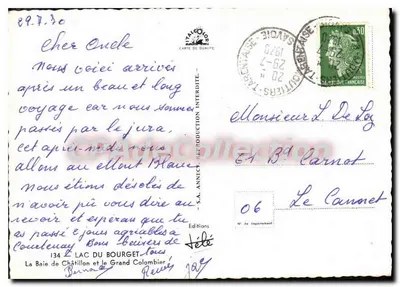 29.7.70
Cher Oncle
Nous voici arrivés
après un beau et long
voyage car nous sommes
passés par le jura,
cet après-midi nous
allons au Mont Blanc
Nous étions désolés de
n'avoir pu vous dire au
revoir et esperons que tu
as passé jours agréables à
Courtenay Bons baisers de
tous
134 LAC DU BOURGET
La Baie de Châtillon et le Grand Colombier
CARTE DE QUALITÉ
REPRODUCTION INTERDITE
Editions
télé
MOUTIERS-TARENTAISE
SAVOIE
29-7
1970
0,30
Monsieur L De Loy
61 Bd Carnot
06
Le Cannet
Collection